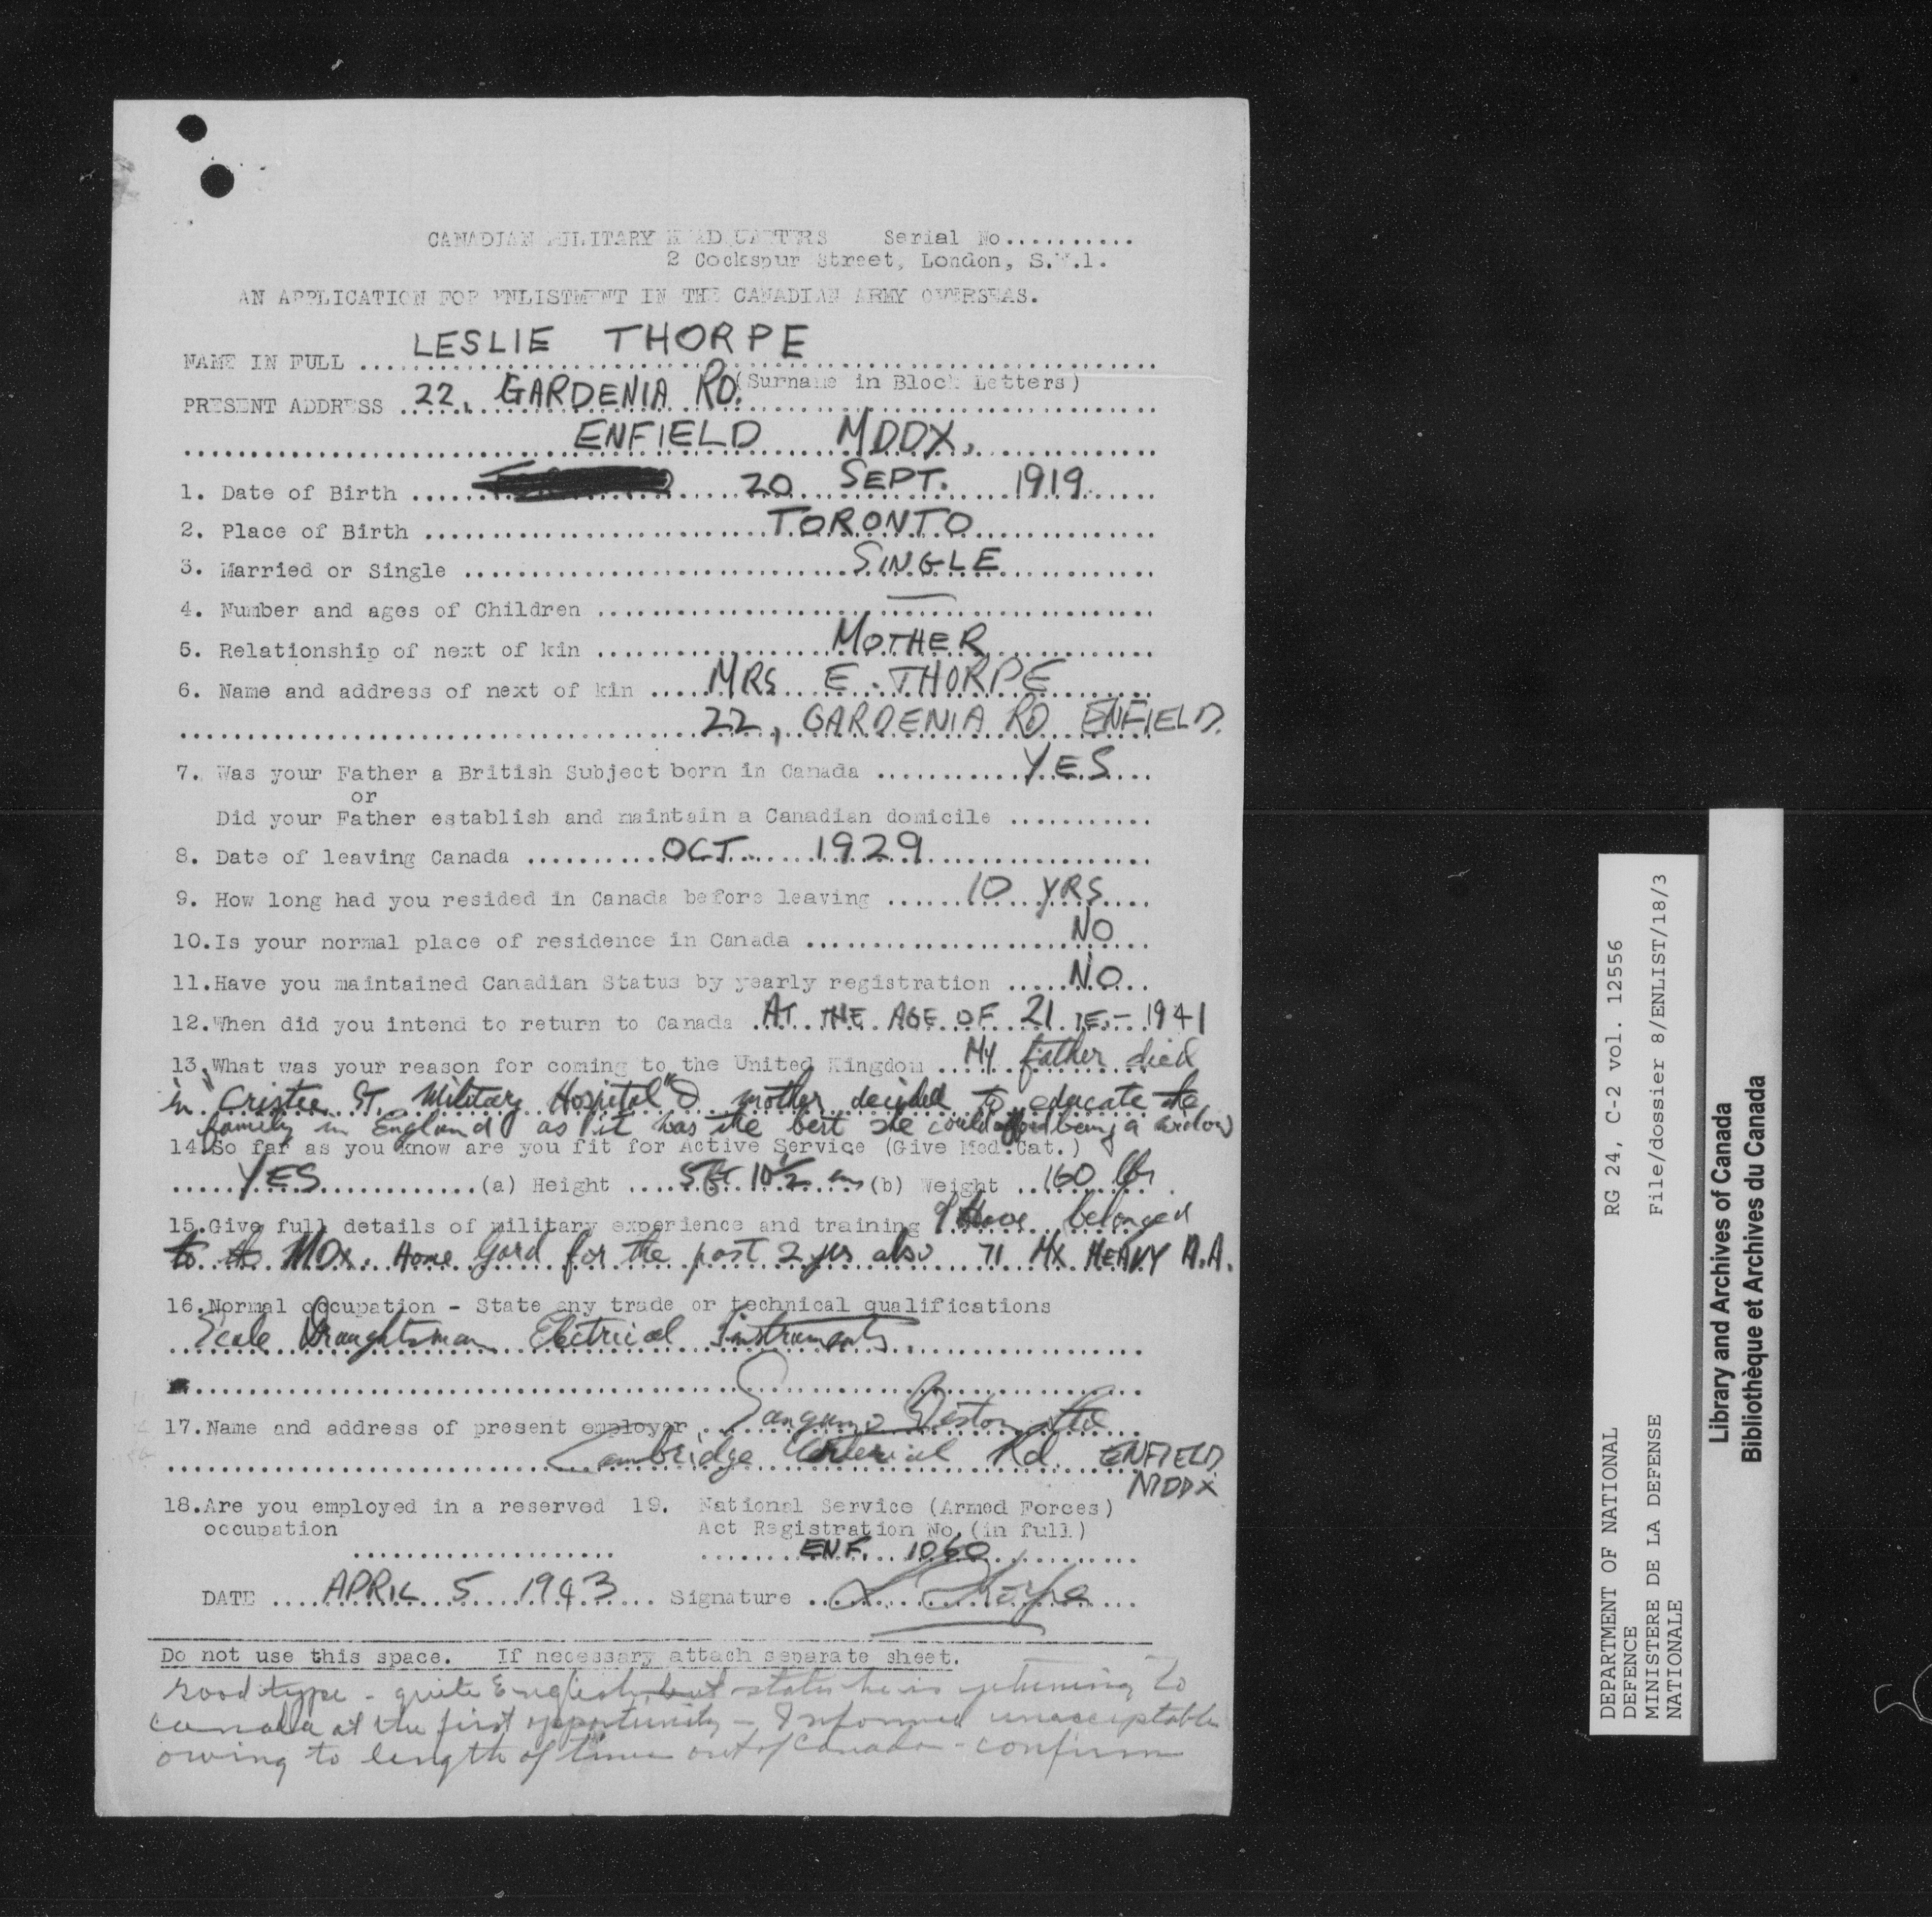 CANADIAN MILITARY HEADQUARTERS Serial No...........
2 Cockspur Street, London, S.W.1.
AN APPLICATION FOR ENLISTMENT IN THE CANADIAN ARMY OVERSEAS.
NAME IN FULL LESLIE THORPE
(Surname in Block Letters)
PRESENT ADDRESS 22, GARDENIA RD.
ENFIELD MDDX,
1. Date of Birth 20 SEPT. 1919
2. Place of Birth TORONTO
3. Married or Single SINGLE
4. Number and ages of Children —
5. Relationship of next of kin MOTHER
6. Name and address of next of kin MRS E. THORPE
22, GARDENIA RD ENFIELD.
7. Was your Father a British Subject born in Canada YES
or
Did your Father establish and maintain a Canadian domicile ...........
8. Date of leaving Canada OCT. 1929
9. How long had you resided in Canada before leaving 10 YRS
10. Is your normal place of residence in Canada NO
11. Have you maintained Canadian Status by yearly registration NO
12. When did you intend to return to Canada AT THE AGE OF 21 IE.- 1941
13. What was your reason for coming to the United Kingdom My father died
in "Cristee ST. Military Hospital" & mother decided to educate the
family in England as it was the best she could afford being a widow
14. So far as you know are you fit for Active Service (Give Med.Cat.)
YES (a) Height 5ft 10½ ins (b) Weight 160 lbs.
15. Give full details of military experience and training I have belonged
to the MDx. Home Gard for the past 2 yrs also 71 MX HEAVY A.A.
16. Normal occupation - State any trade or technical qualifications
Scale Draughtsman Electrical Instruments.
17. Name and address of present employer Sangamo Weston Ltd
Cambridge Arterial Rd. ENFIELD
MDDX
18. Are you employed in a reserved 19. National Service (Armed Forces)
occupation Act Registration No. (in full)
..................... ENF. 1060
DATE APRIL 5 1943 Signature L. Thorpe
Do not use this space. If necessary attach separate sheet.
Good type - quite English, but states he is returning to
Canada at the first opportunity - Informed unacceptable
owing to length of time out of Canada - confirm
DEPARTMENT OF NATIONAL RG 24, C-2 vol. 12556
DEFENCE
MINISTERE DE LA DEFENSE File/dossier 8/ENLIST/18/3
NATIONALE
Library and Archives of Canada
Bibliothèque et Archives du Canada